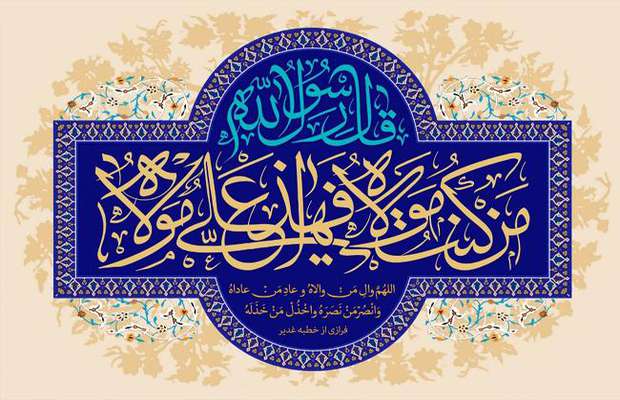 قال رسول الله
من كنت مولاه فهذا علي مولاه
اللهُمَّ والِ مَنْ والاهُ وَ عادِ مَنْ عاداهُ
وَانْصُرْ مَنْ نَصَرَهُ وَاخْذُلْ مَنْ خَذَلَهُ
فرازی از خطبه غدیر